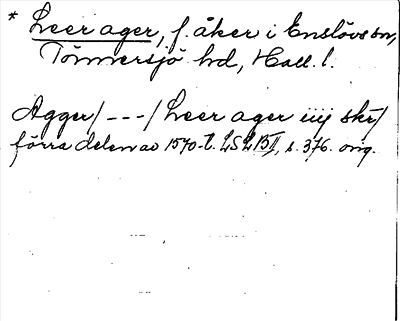 * Leer ager, f. åker i Enslövs sn,
Tönnersjö hd, Hall. l.
Agger/---/Leer ager iiij skr/
förra delen av 1570-t. LSL BII, s. 376. orig.